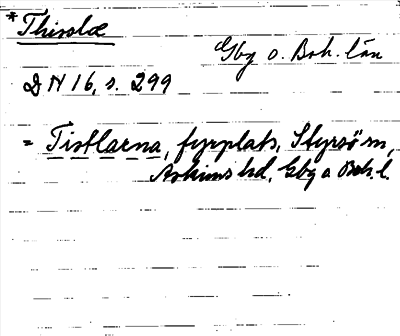 *Thisslæ
Gbg o. Boh. län
DN 16, s. 299
= Tistlarna, fyrplats, Styrsö sn,
Askims hd, Gbg o Boh. l.